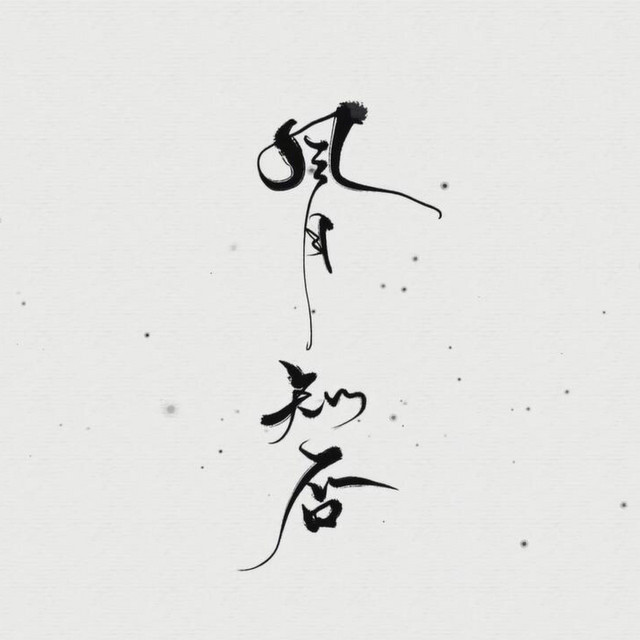 风月知否